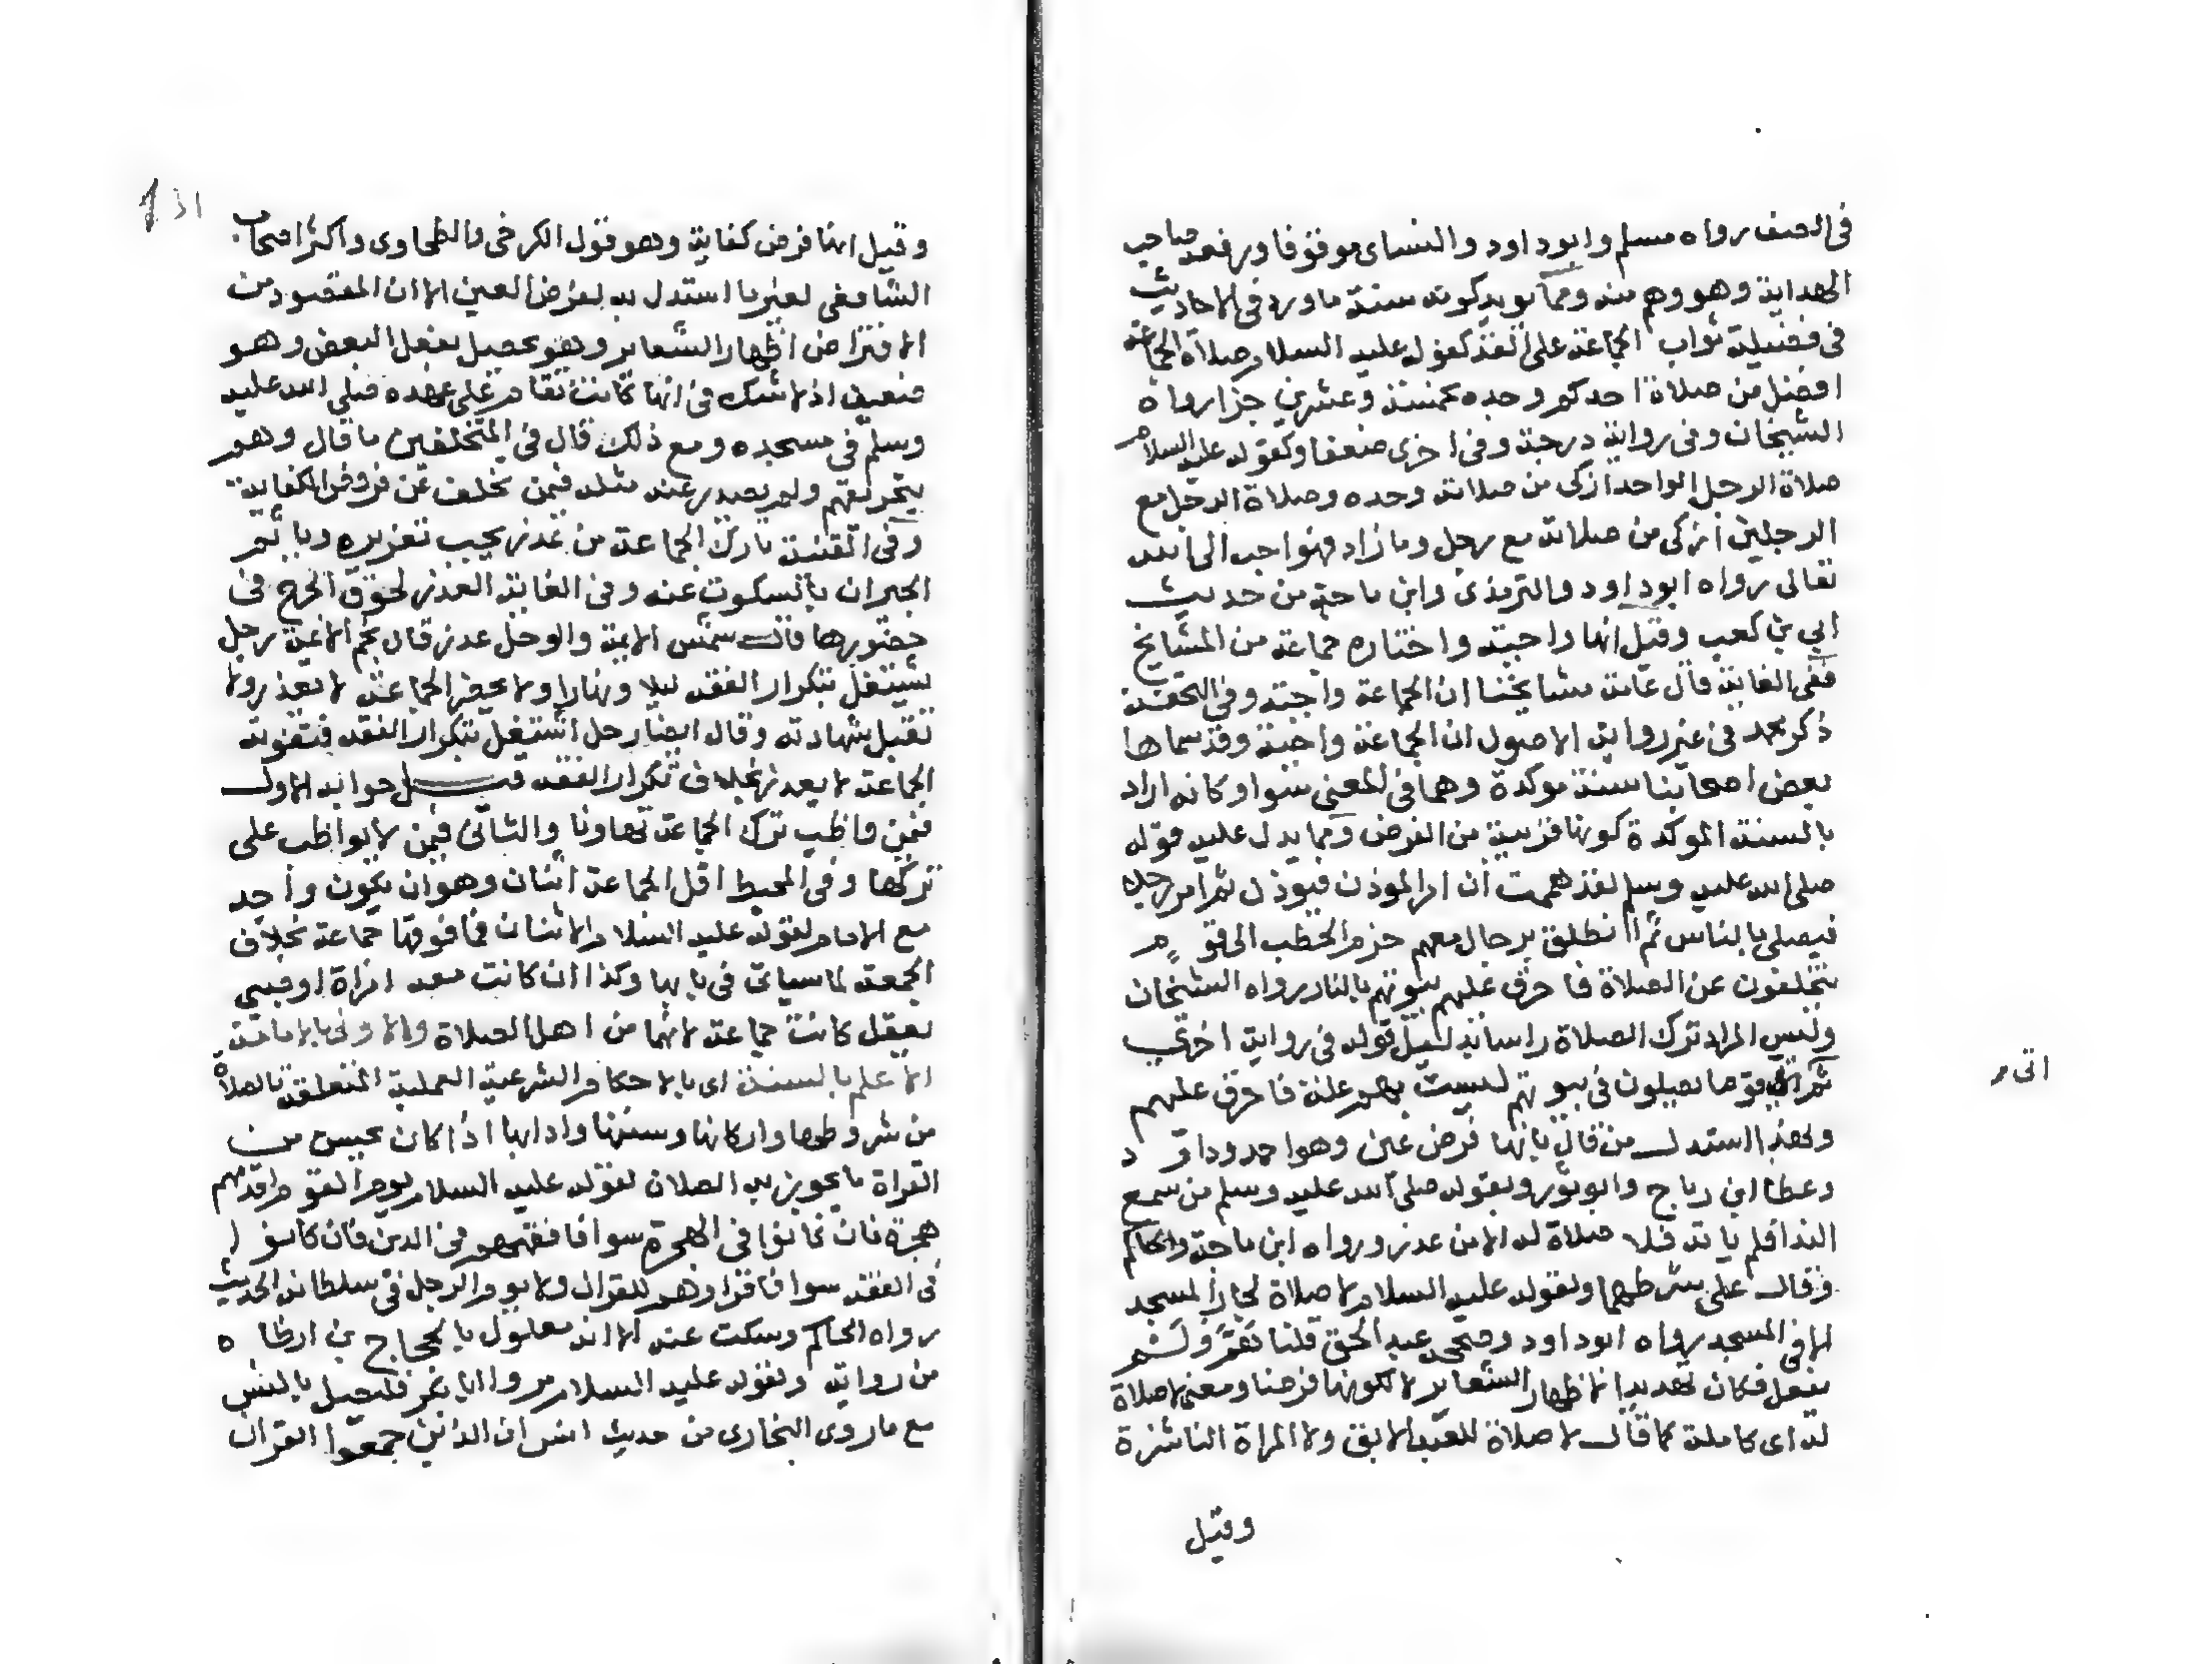 في الصف رواه مسلم وابو داود والنساى موقوفا ورفعه صاحب
الهداية وهو وهم منه ومما يويد كونه سنة ما ورد في الاحاديث
في فضيلة ثواب الجماعة على الفذ كقوله عليه السلام صلاة الجماعة
افضل من صلاة احدكم وحده بخمسة وعشرين جزا رواه
الشيخان وفي رواية درجة وفي اخرى ضعفا وكقوله عليه السلام
صلاة الرجل الواحد ازكى من صلاته وحده وصلاة الرجل مع
الرجلين ازكى من صلاته مع رجل وما زاد فهو احب الى الله
تعالى رواه ابو داود والترمذى وابن ماجة من حديث
ابي بن كعب وقيل انها واجبة واختاره جماعة من المشايخ
ففي الغاية قال عامة مشايخنا ان الجماعة واجبة وفي التحفة
ذكر محمد في غير رواية الاصول ان الجماعة واجبة وقد سماها
بعض اصحابنا سنة موكدة وهما في المعنى سوا وكانه اراد
بالسنة الموكدة كونها قريبة من الفرض ومما يدل عليه قوله
صلى الله عليه وسلم لقد هممت ان امر الموذن فيوذن ثم امر رجلا
فيصلي بالناس ثم انطلق برجال معهم حزم الحطب الى قوم
يتخلفون عن الصلاة فاحرق عليهم بيوتهم بالنار رواه الشيخان
وليس المراد ترك الصلاة راسا بدليل قوله في رواية اخرى
ثم اتى قوما يصلون في بيوتهم ليست بهم علة فاحرق عليهم
وبهذا استدل من قال بانها فرض عين وهو احمد وداود
وعطا ابن رباح وابو ثور وبقوله صلى الله عليه وسلم من سمع
الندا فلم ياته فلا صلاة له الا من عذر رواه ابن ماجة والحاكم
وقال على شرطهما وبقوله عليه السلام لا صلاة لجار المسجد
الا في المسجد رواه ابو داود وصححه عبد الحق قلنا
يفعل فكان تهديدا لاظهار الشعاير لا لكونها فرضا ومعنى لا صلاة
له اى كاملة كما قال لا صلاة للعبد الابق ولا المراة الناشزة
وقيل
اتى م
وقيل انها فرض كفاية وهو قول الكرخى والطحاوى واكثر اصحاب
الشافعى لعين ما استدل به لفرض العين الا ان المقصود من
الافتراض اظهار الشعاير وهو يحصل بفعل البعض وهو
ضعيف اذ لا شك في انها كانت تقام على عهده صلى الله عليه
وسلم في مسجده ومع ذلك قال في المتخلفين ما قال وهم
بتحريقهم ولم يصدر عنه مثله فيمن تخلف عن فروض الكفاية
وفي القنية تارك الجماعة من غير عذر يجب تعزيره وياثم
الجيران بالسكوت عنه وفي الغاية العذر لحوق الحرج في
حضورها قال شمس الايمة والوحل عذر قال نجم الايمة رجل
يشتغل بتكرار الفقه ليلا ونهارا ولا يحضر الجماعة لا يعذر ولا
تقبل شهادته وقال ايضا رجل اشتغل بتكرار الفقه فتفوته
الجماعة لا يعذر بخلاف تكرار الفقه قيل جوابه الاول
فيمن واظب ترك الجماعة تهاونا والثاني فيمن لا يواظب على
تركها وفي المحيط اقل الجماعة اثنان وهو ان يكون واحد
مع الامام لقوله عليه السلام الاثنان فما فوقها جماعة بخلاف
الجمعة لما سياتي في بابها وكذا ان كانت معه امراة او صبي
يعقل كانت جماعة لانهما من اهل الصلاة والاولى بالامامة
الاعلم بالسنة اى بالاحكام الشرعية العملية المتعلقة بالصلاة
من شروطها واركانها وسننها وادابها اذا كان يحسن من
القراة ما يجوز به الصلاة لقوله عليه السلام يوم القوم اقدمهم
هجرة فان كانوا في الهجرة سوا فافقههم في الدين فان كانوا
في الفقه سوا فاقراوهم للقران ولا يوم الرجل في سلطانه الحديث
رواه الحاكم وسكت عنه الا انه معلول بالحجاج بن ارطاه
من رواية ولقوله عليه السلام مروا ابا بكر فليصل بالناس
مع ما روى البخارى من حديث انس ان الذين جمعوا القران